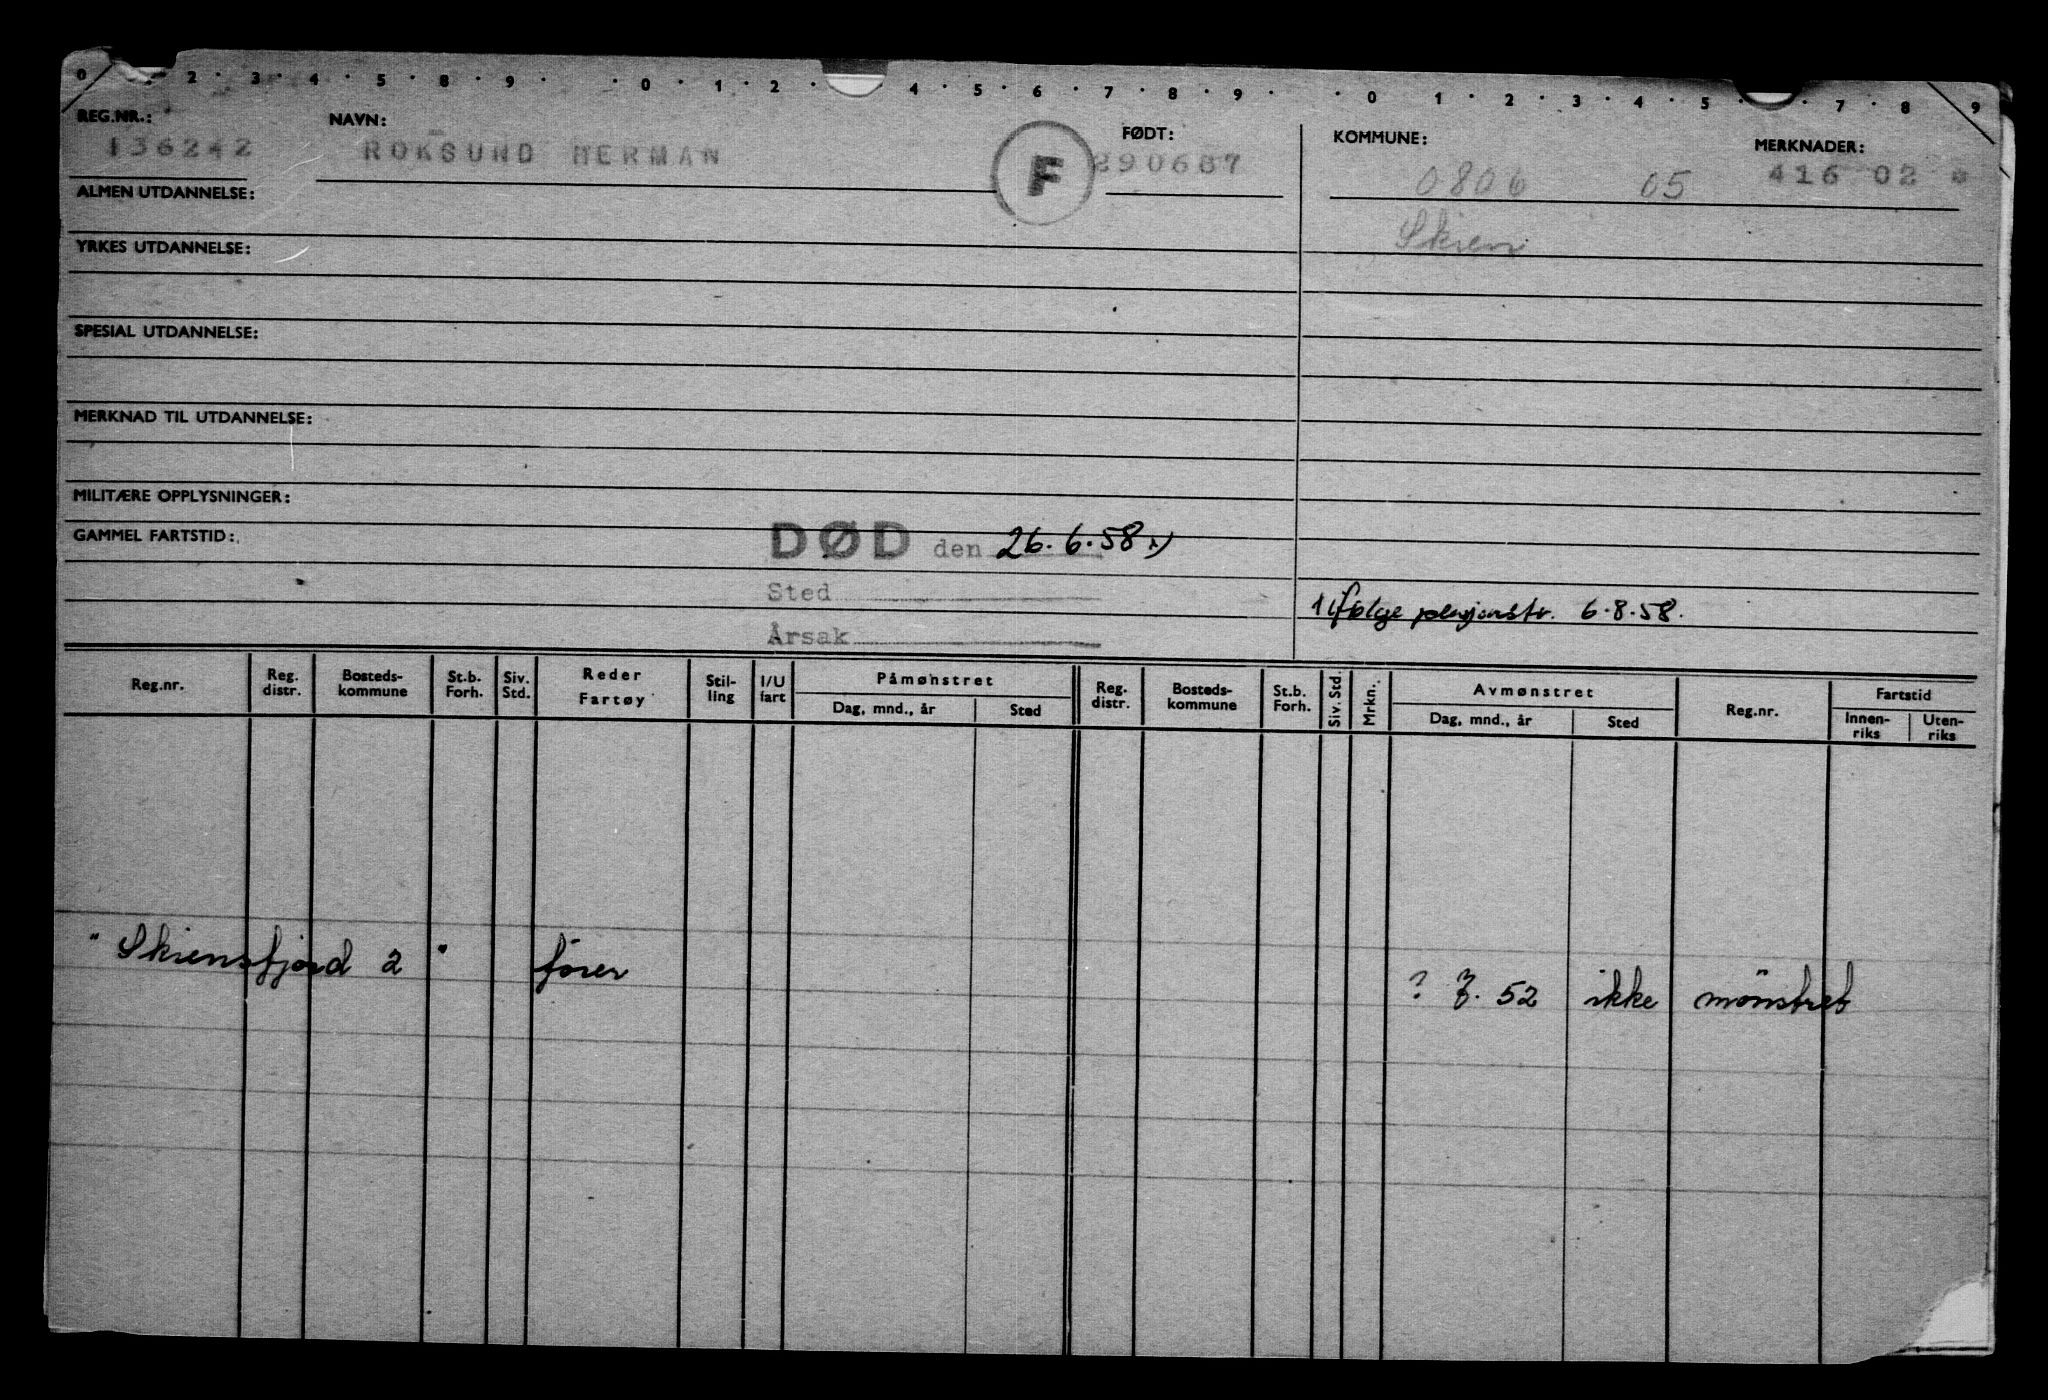 0 2 · 3 · 4 · 5 · 8 · 9 · · 0 · 1 · 2 · 4 · 5 · 6 · 7 · 8 · 9 · · 0 · 1 · 2 · 3 · 4 · 5 · · 7 · 8 · 9
REG.NR.: NAVN: FØDT: KOMMUNE: MERKNADER:
136242 ROKSUND HERMAN F 290687 0806 05 416 02
ALMEN UTDANNELSE:
Skien
YRKES UTDANNELSE:
SPESIAL UTDANNELSE:
MERKNAD TIL UTDANNELSE:
MILITÆRE OPPLYSNINGER:
GAMMEL FARTSTID:
DØD den 26.6.58 1)
Sted
1 ifølge pensjonstr. 6.8.58.
Årsak
Reg.nr. Reg. distr. Bosteds-kommune St.b. Forh. Siv. Std. Reder Fartøy Stil-ling I/U fart Påmønstret Dag, mnd., år Sted Reg. distr. Bosteds-kommune St.b. Forh. Siv. Std. Mrkn. Avmønstret Dag, mnd., år Sted Reg.nr. Fartstid Innen-riks Uten-riks
"Skiensfjord 2" fører ? 7. 52 ikke mönstret